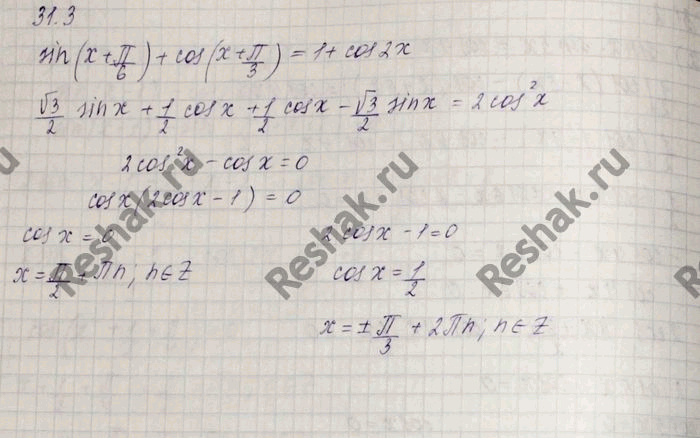 31.3
sin(x+π/6)+cos(x+π/3)=1+cos2x
√3/2 sinx+1/2 cosx+1/2 cosx-√3/2 sinx=2cos²x
2cos²x-cosx=0
cosx(2cosx-1)=0
cosx=0
x=π/2+πn; n∈Z
2cosx-1=0
cosx=1/2
x=±π/3+2πn; n∈Z
Reshak.ru
Reshak.ru
Reshak.ru